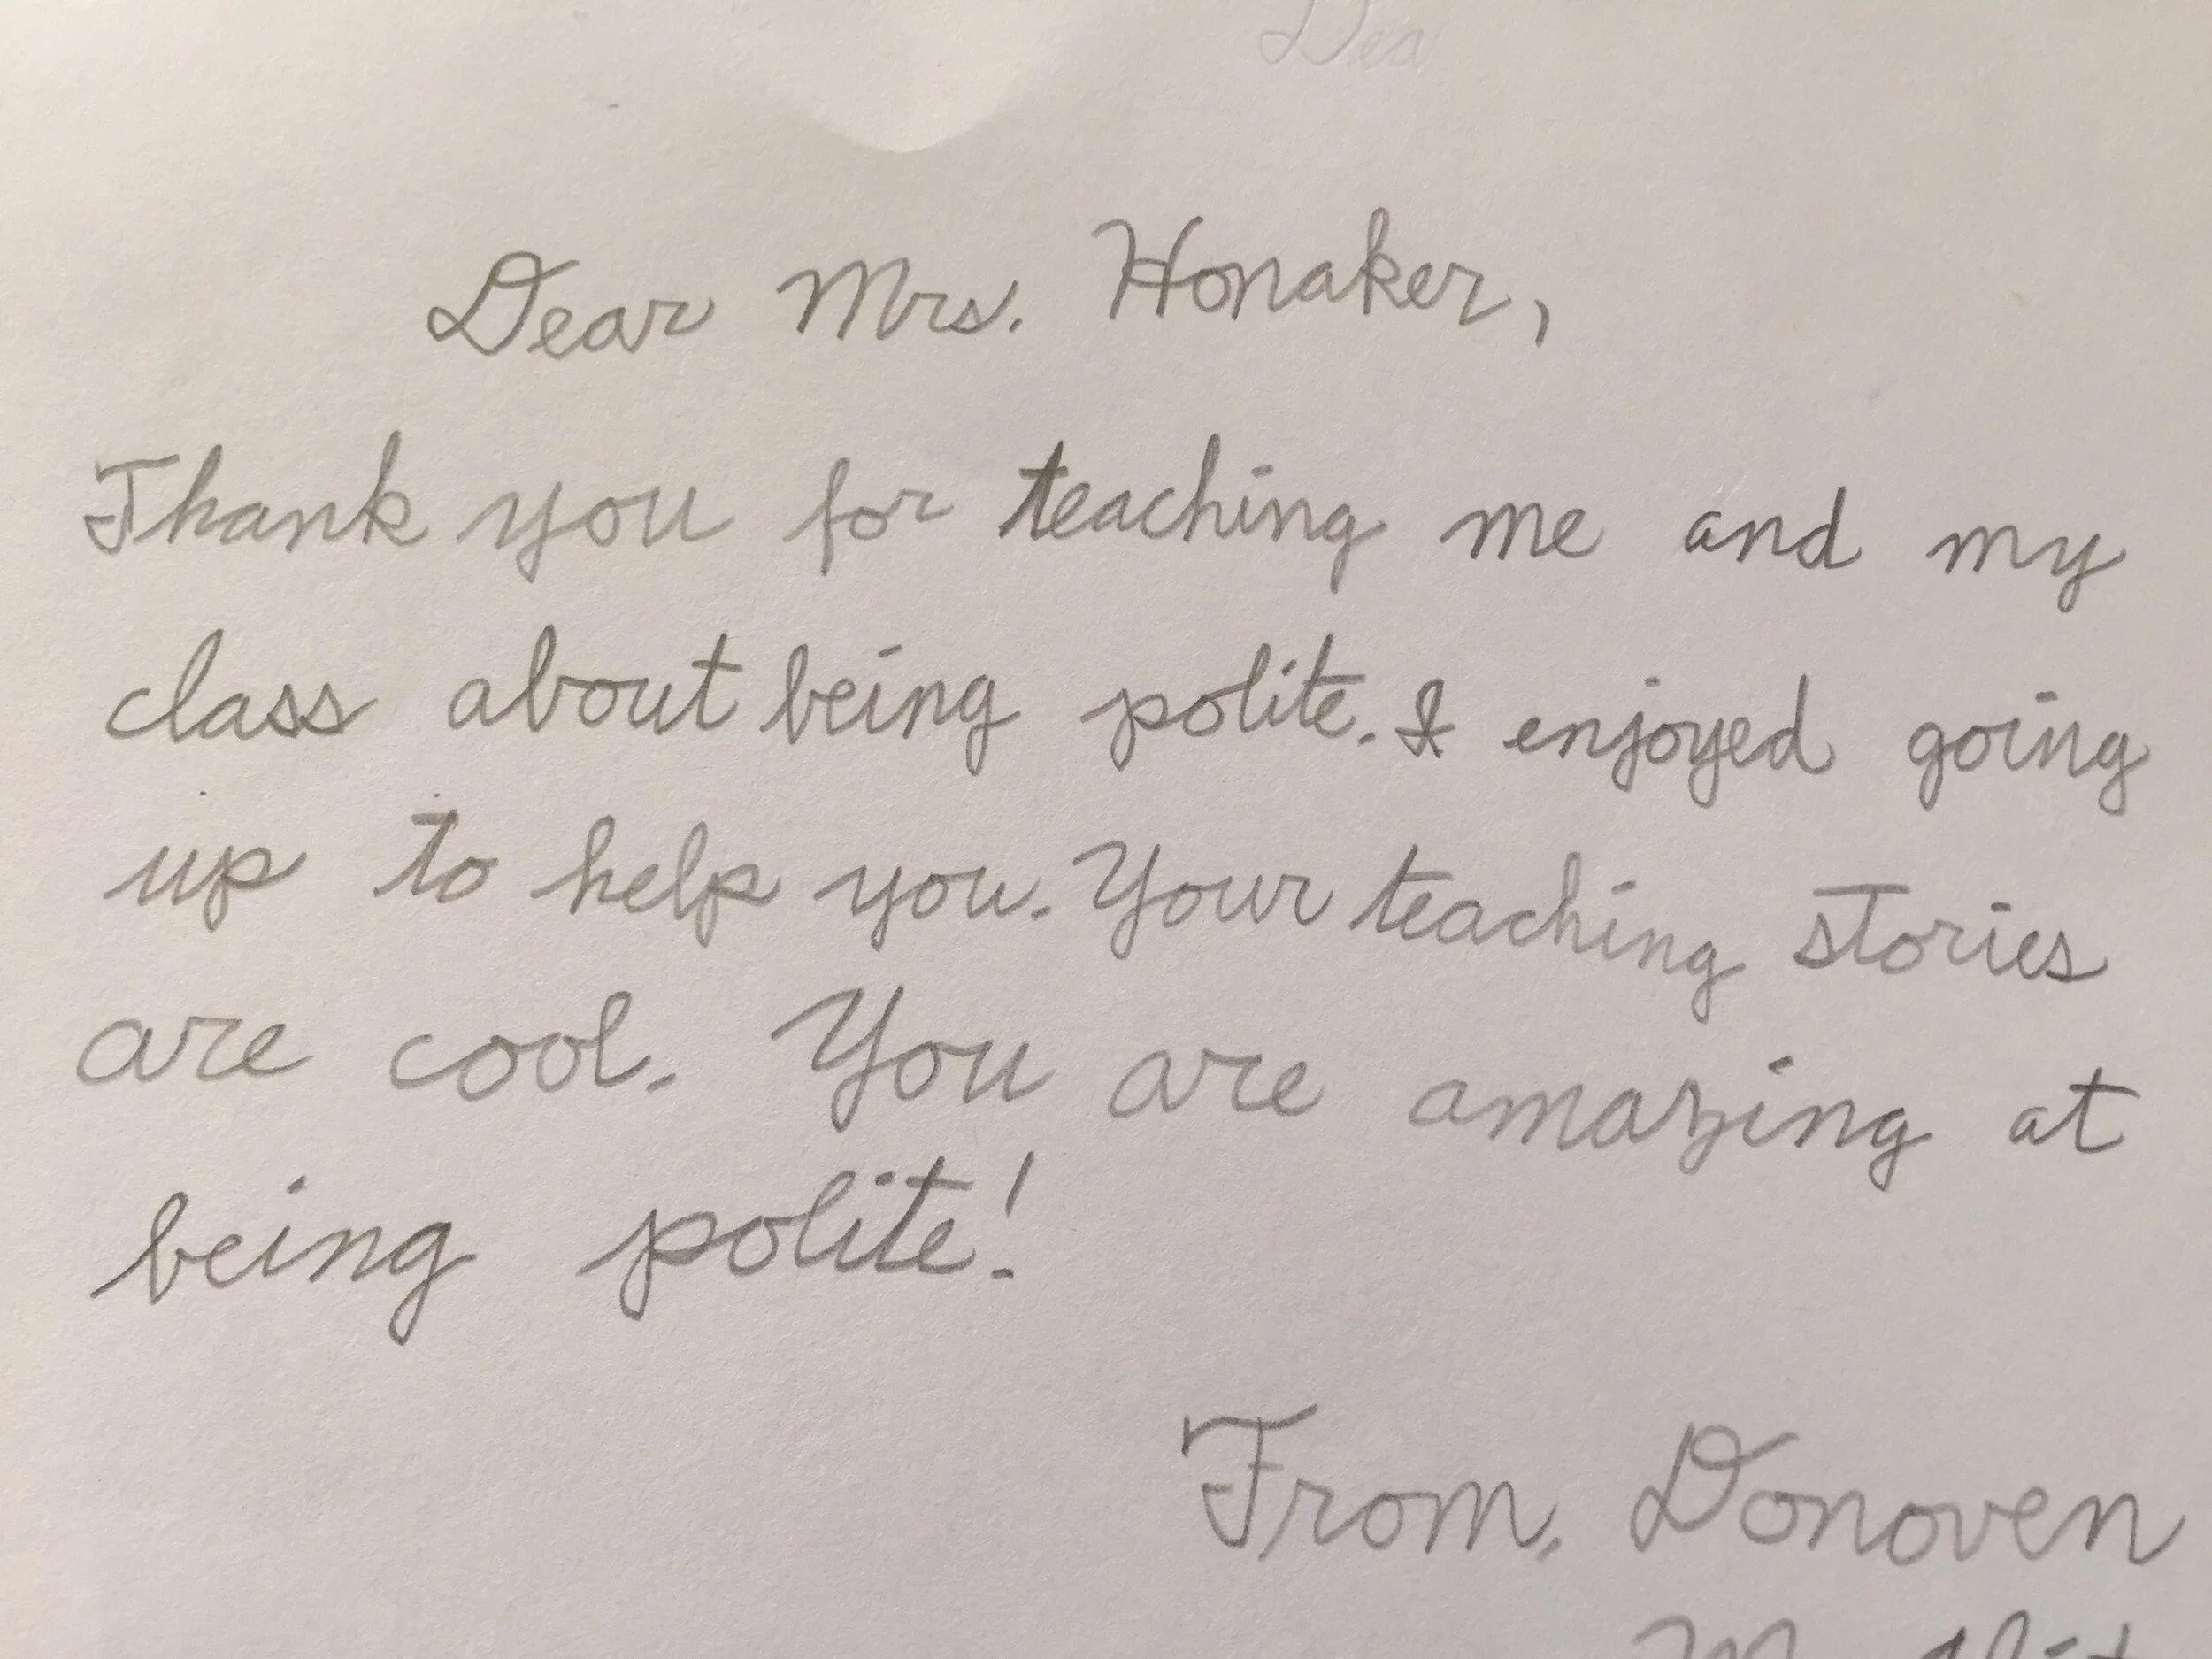 Dea
Dear Mrs. Honaker,
Thank you for teaching me and my
class about being polite. I enjoyed going
up to help you. Your teaching stories
are cool. You are amazing at
being polite!
From, Donoven